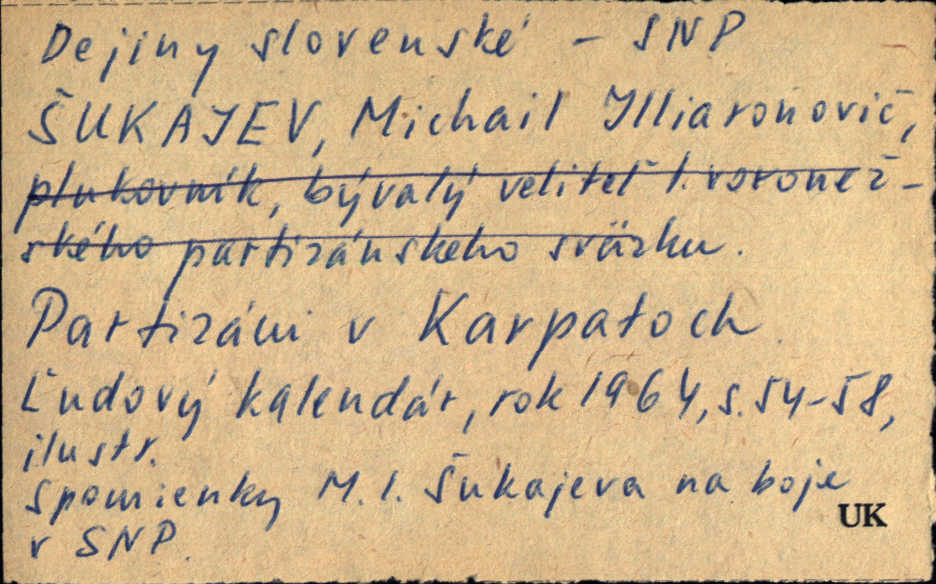 Dejiny slovenské - SNP
ŠUKAJEV, Michail Illiaronovič,
plukovník, bývalý veliteľ 1. voronež-
ského partizánskeho sväzku.
Partizáni v Karpatoch.
Ľudový kalendár, rok 1964, s. 54-58,
ilustr.
Spomienky M. I. Šukajeva na boje
v SNP.
UK